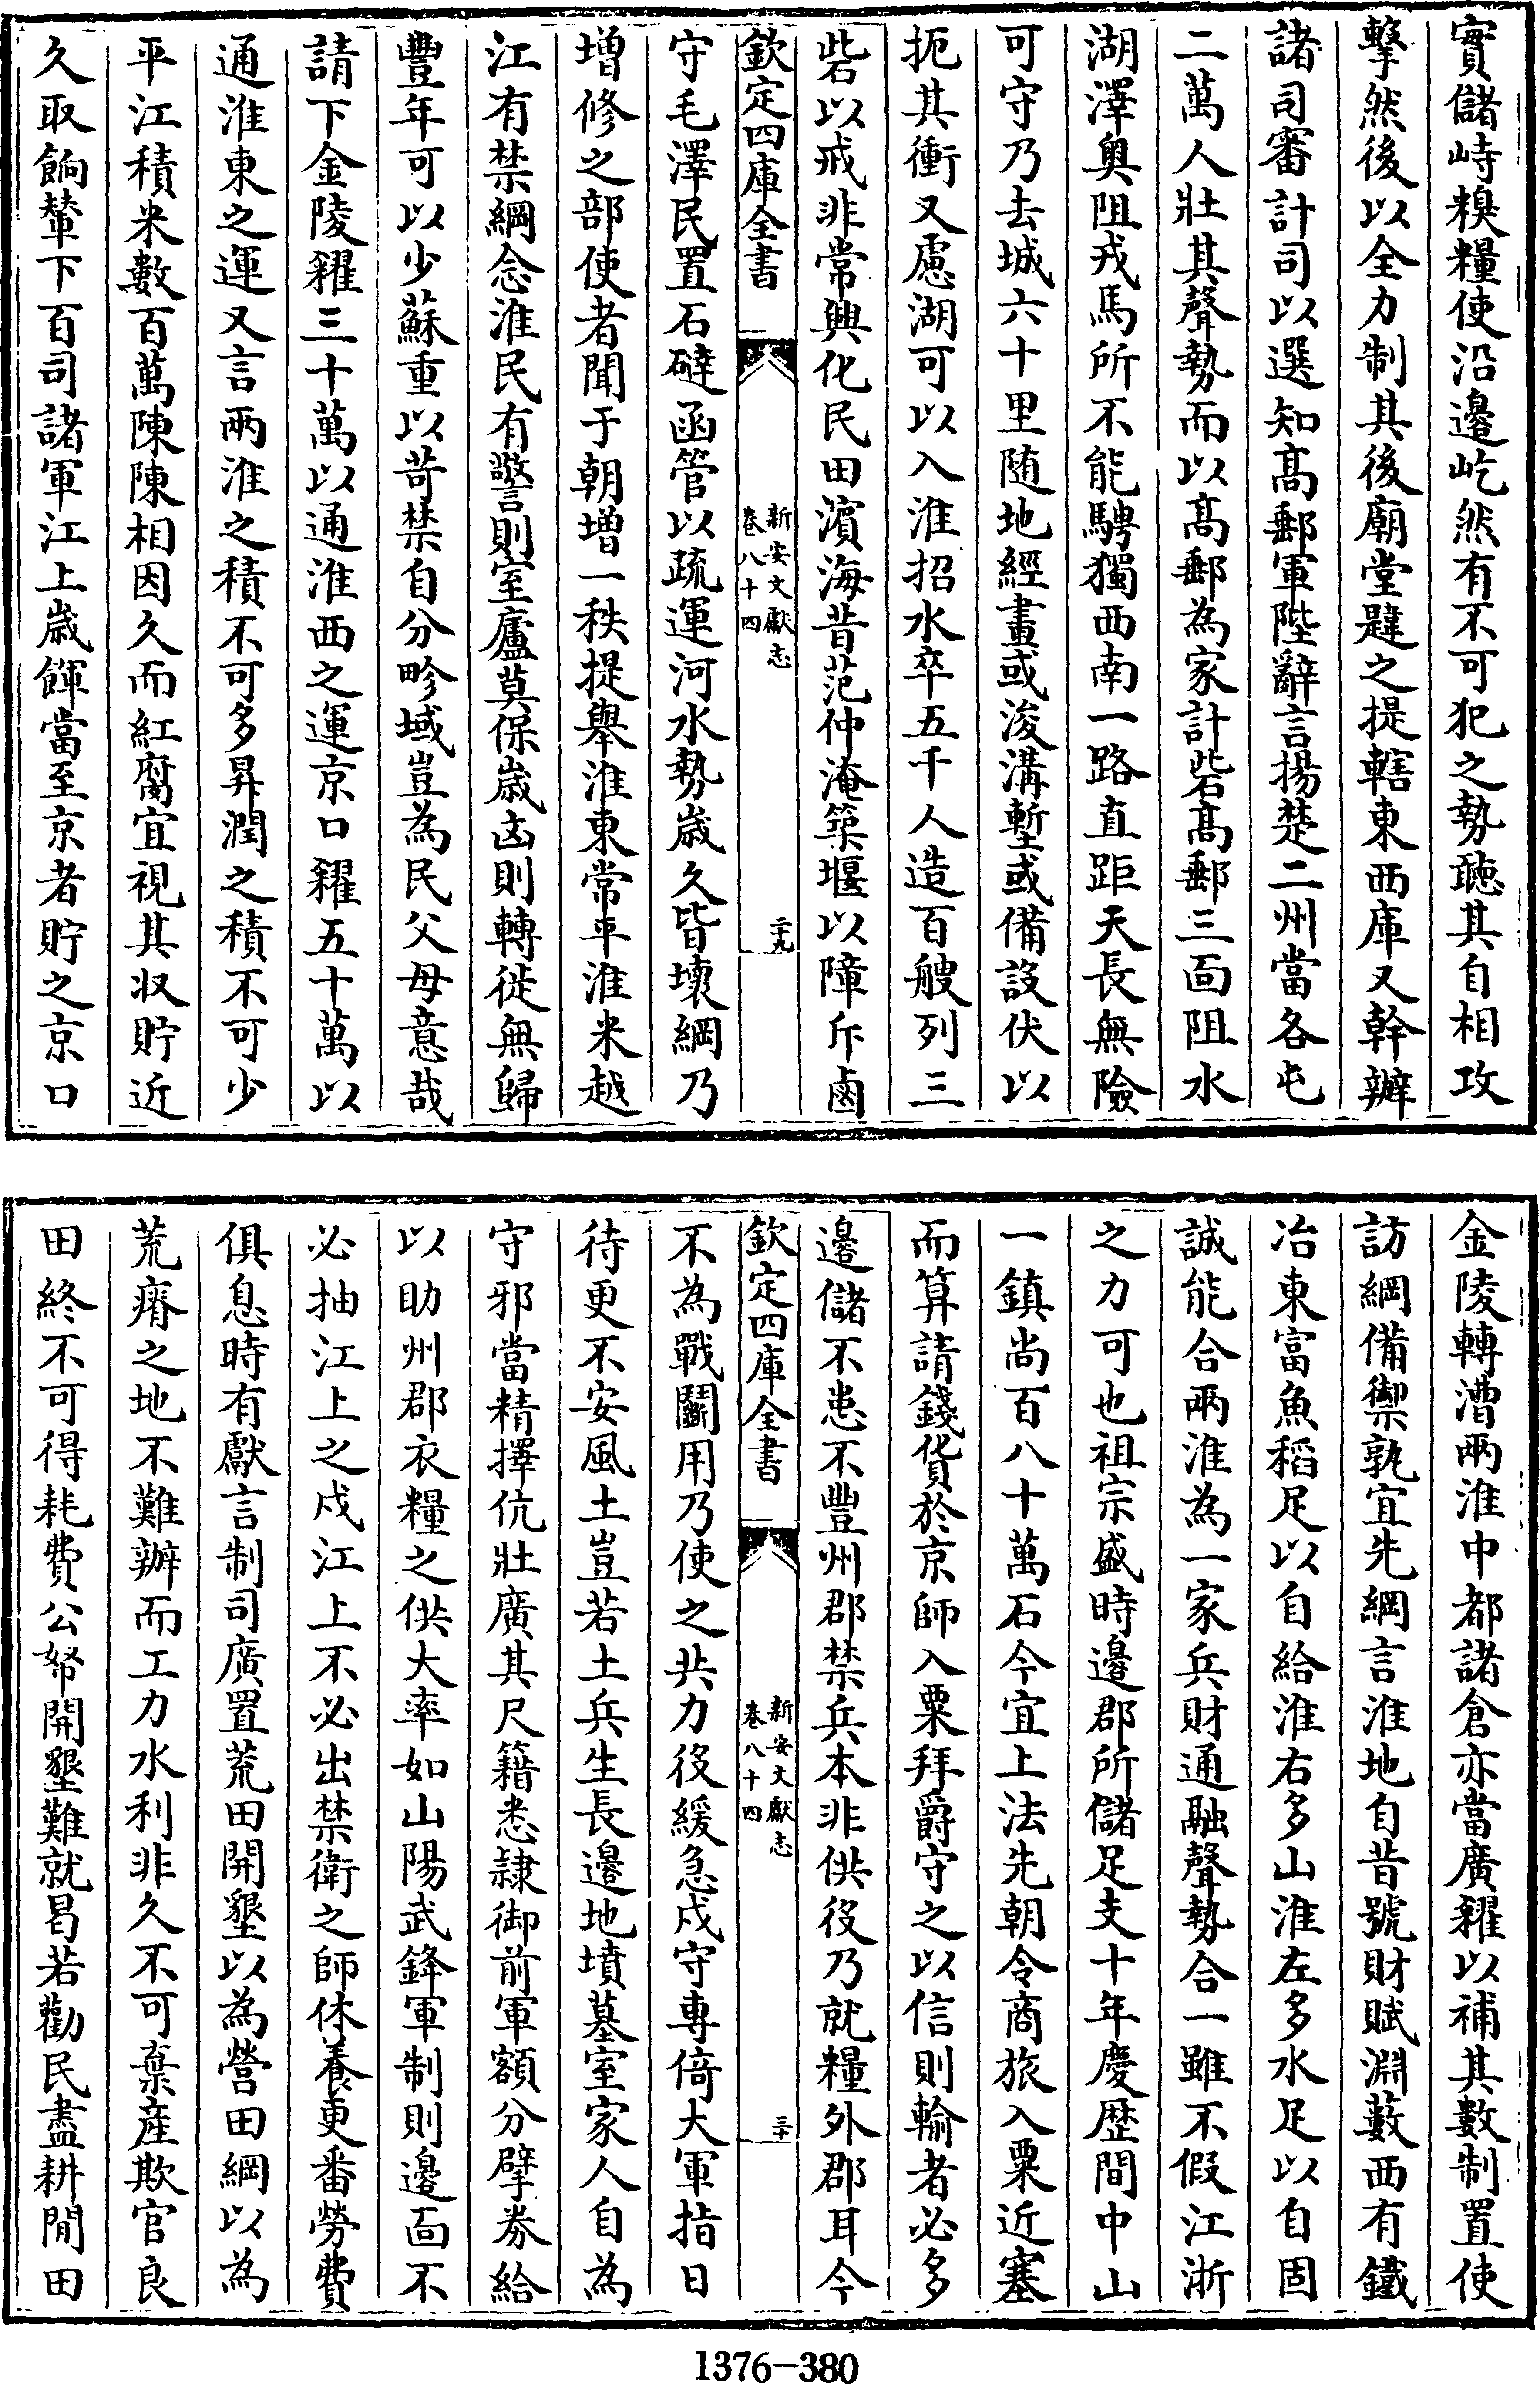 實儲峙糗糧使沿邊屹然有不可犯之勢聽其自相攻
擊然後以全力制其後廟堂韙之提轄東西庫又幹辦
諸司審計司以選知髙郵軍陛辭言揚楚二州當各屯
二萬人壯其聲勢而以髙郵為家計砦髙郵三面阻水
湖澤奥阻戎馬所不能騁獨西南一路直距天長無險
可守乃去城六十里随地經畫或浚溝塹或備設伏以
扼其衝又慮湖可以入淮招水卒五千人造百艘列三
砦以戒非常興化民田濱海昔范仲淹築堰以障斥鹵
欽定四庫全書
新安文獻志
卷八十四
二十九
守毛澤民置石䃶函管以疏運河水勢歲久皆壞綱乃
增修之部使者聞于朝增一秩提舉淮東常平淮米越
江有禁綱念淮民有警則室廬莫保歲凶則轉徙無歸
豐年可以少蘇重以苛禁自分畛域豈為民父母意哉
請下金陵糴三十萬以通淮西之運京口糴五十萬以
通淮東之運又言兩淮之積不可多昇潤之積不可少
平江積米數百萬陳陳相因久而紅腐宜視其収貯近
久取餉輦下百司諸軍江上歲餫當至京者貯之京口
金陵轉漕兩淮中都諸倉亦當廣糴以補其數制置使
訪綱備禦孰宜先綱言淮地自昔號財賦淵藪西有鐵
冶東富魚稻足以自給淮右多山淮左多水足以自固
誠能合兩淮為一家兵財通融聲勢合一雖不假江浙
之力可也祖宗盛時邊郡所儲足支十年慶歴間中山
一鎮尚百八十萬石今宜上法先朝令商旅入粟近塞
而算請錢貨於京師入粟拜爵守之以信則輸者必多
邊儲不患不豐州郡禁兵本非供役乃就糧外郡耳今
欽定四庫全書
新安文獻志
卷八十四
三十
不為戰鬬用乃使之共力役緩急戍守專倚大軍指日
待更不安風土豈若土兵生長邊地墳墓室家人自為
守邪當精擇伉壯廣其尺籍悉隷御前軍額分擘券給
以助州郡衣糧之供大率如山陽武鋒軍制則邊面不
必抽江上之戍江上不必出禁衛之師休養更番勞費
俱息時有獻言制司廣置荒田開墾以為營田綱以為
荒瘠之地不難辦而工力水利非久不可棄産欺官良
田終不可得耗費公帑開墾難就曷若勸民盡耕閒田
1376-380